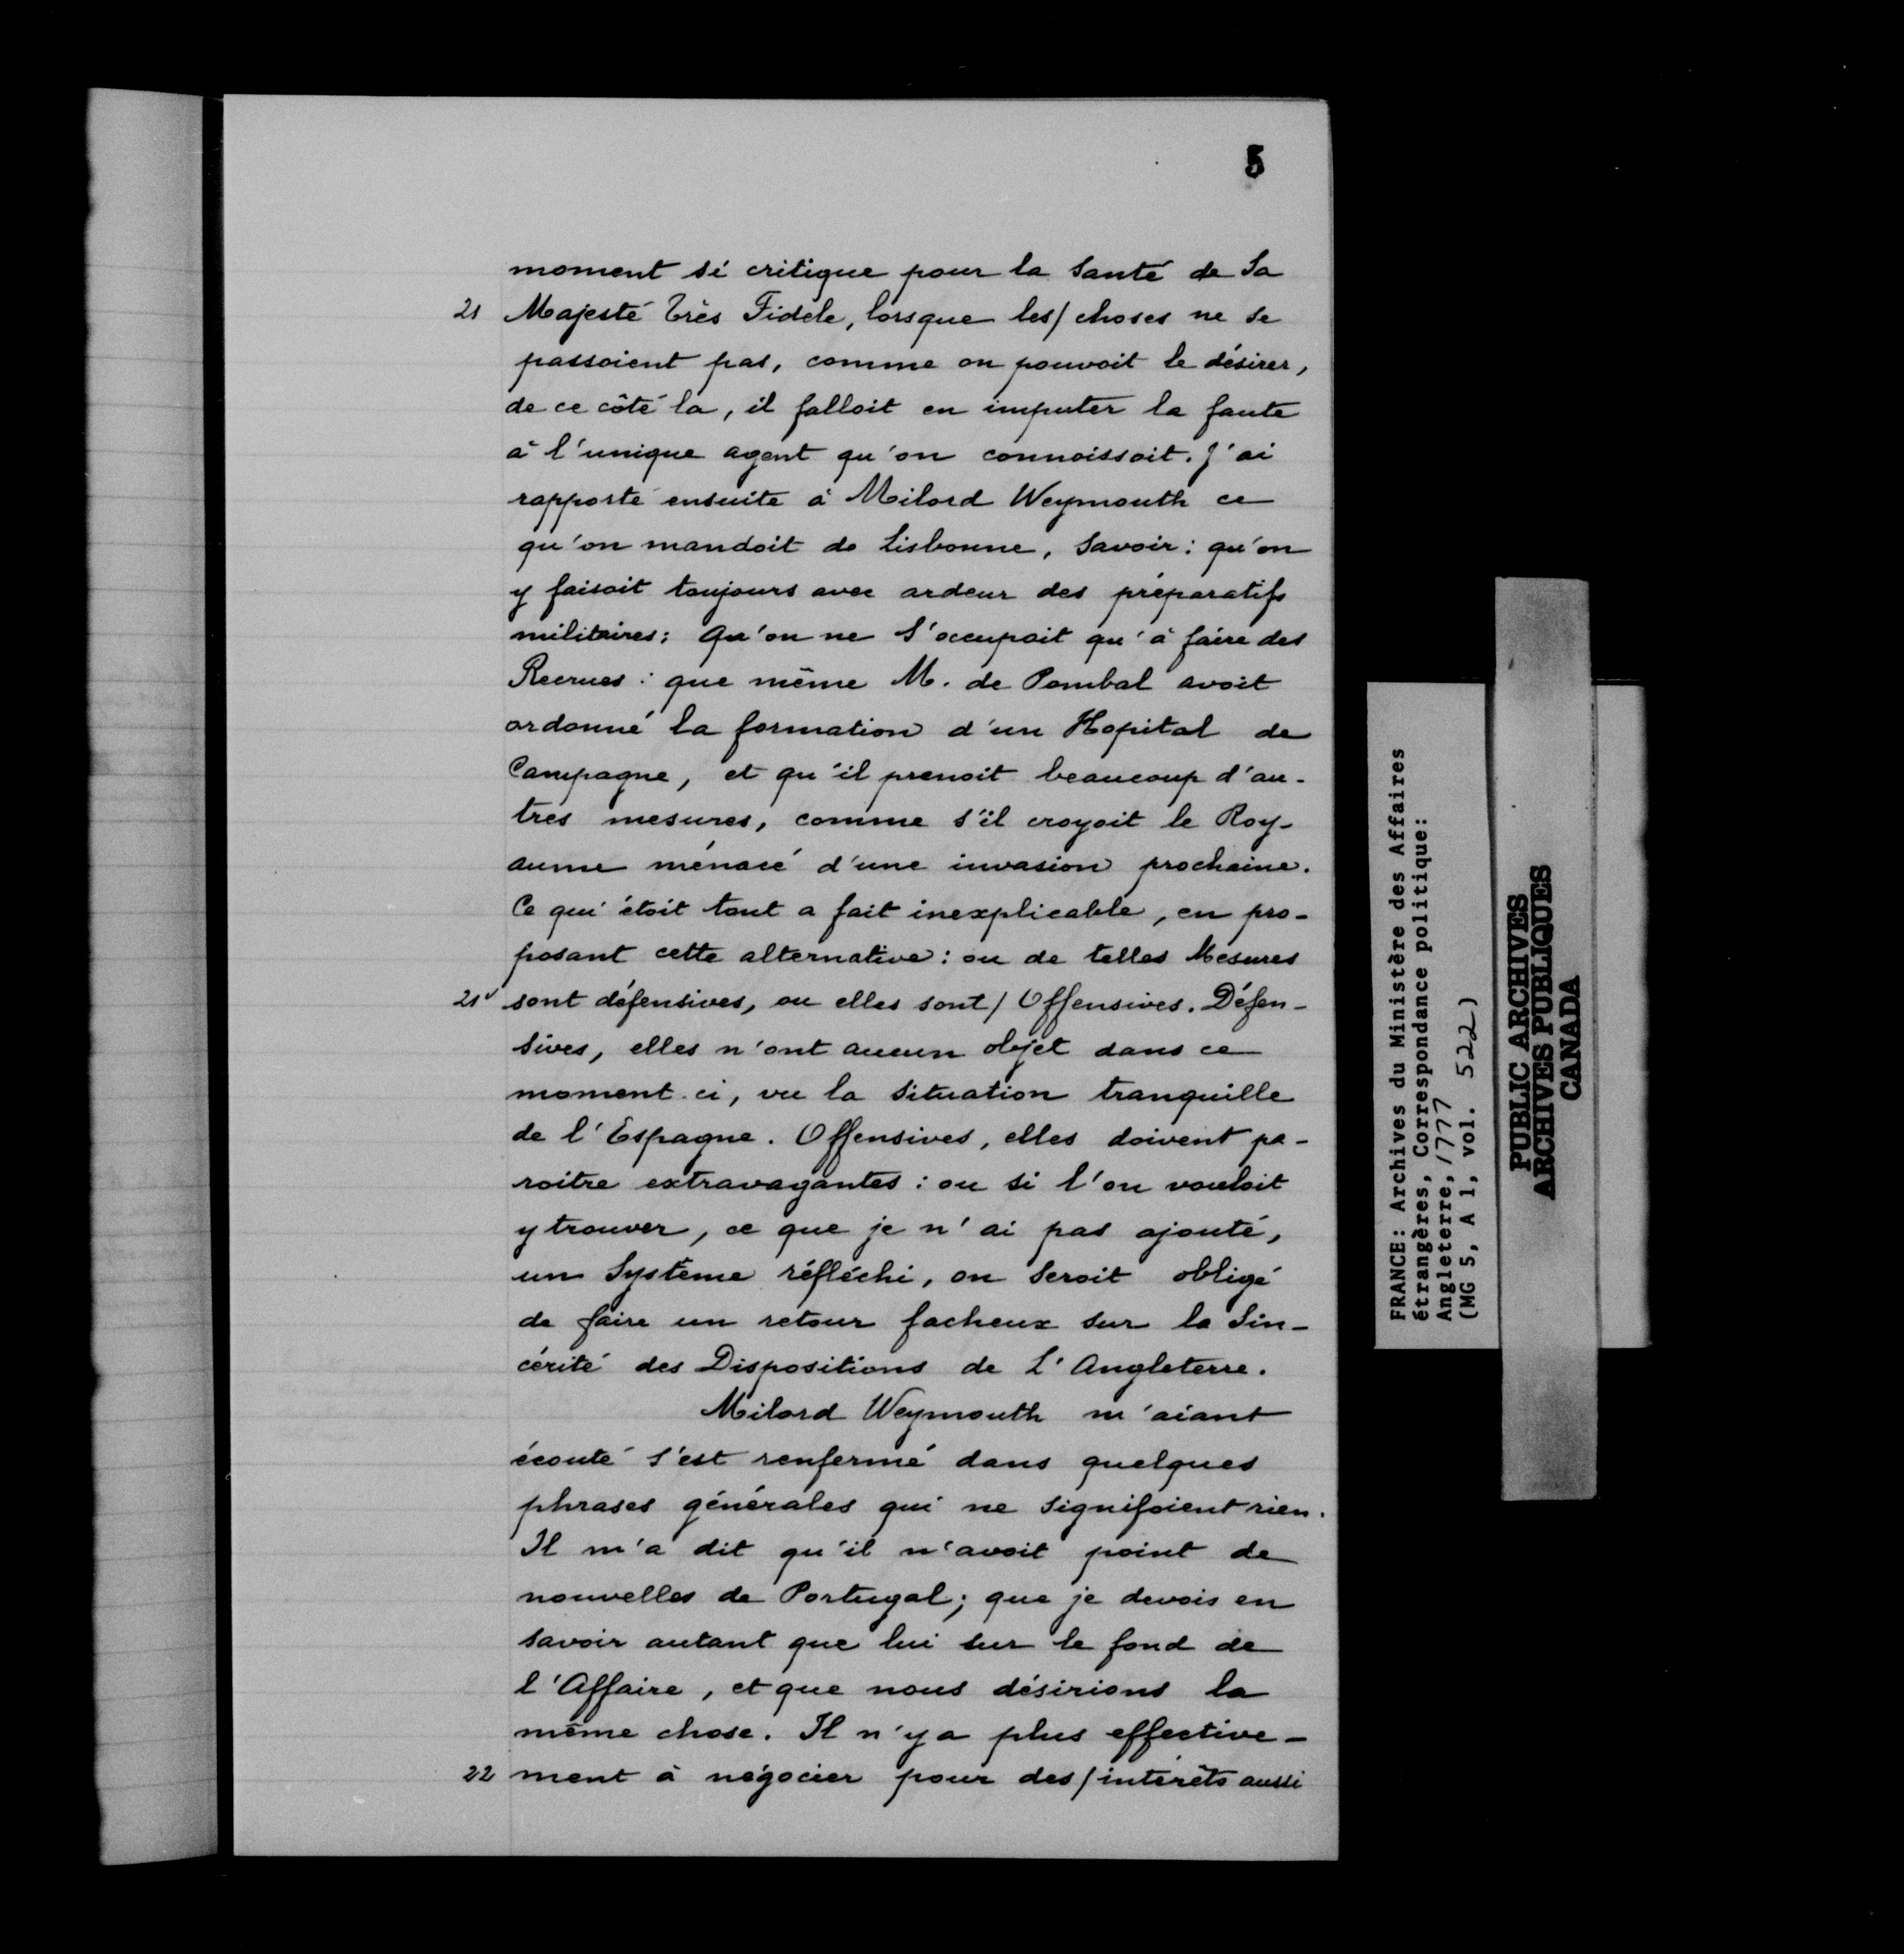 5
moment si critique pour la Santé de Sa
21 Majesté Très Fidele, lorsque les/ choses ne se
passoient pas, comme on pouvoit le désirer,
de ce côté la, il falloit en imputer la faute
à l'unique agent qu'on connoissoit. J'ai
rapporté ensuite à Milord Weymouth ce
qu'on mandoit de Lisbonne, Savoir: qu'on
y faisoit toujours avec ardeur des préparatifs
militaires: Qu'on ne s'occupoit qu'à faire des
Recrues: que même M. de Pombal avoit
ordonné la formation d'un Hopital de
Campagne, et qu'il prenoit beaucoup d'au-
tres mesures, comme s'il croyoit le Roy-
aume ménacé d'une invasion prochaine.
Ce qui étoit tout a fait inexplicable, en pro-
posant cette alternative: ou de telles Mesures
21v sont défensives, ou elles sont/ Offensives. Défen-
sives, elles n'ont aucun objet dans ce
moment ci, vu la Situation tranquille
de l'Espagne. Offensives, elles doivent pa-
roitre extravagantes: ou si l'on vouloit
y trouver, ce que je n'ai pas ajouté,
un Système réfléchi, on seroit obligé
de faire un retour facheux sur la Sin-
cérité des Dispositions de L'Angleterre.
Milord Weymouth m'aiant
écouté s'est renfermé dans quelques
phrases générales qui ne signifoient rien.
Il m'a dit qu'il n'avoit point de
nouvelles de Portugal; que je devois en
savoir autant que lui sur le fond de
l'Affaire, et que nous désirions la
même chose. Il n'y a plus effective-
22 ment à négocier pour des/ intérêts aussi
FRANCE: Archives du Ministère des Affaires
étrangères, Correspondance politique:
Angleterre, 1777
(MG 5, A 1, vol. 522)
PUBLIC ARCHIVES
ARCHIVES PUBLIQUES
CANADA